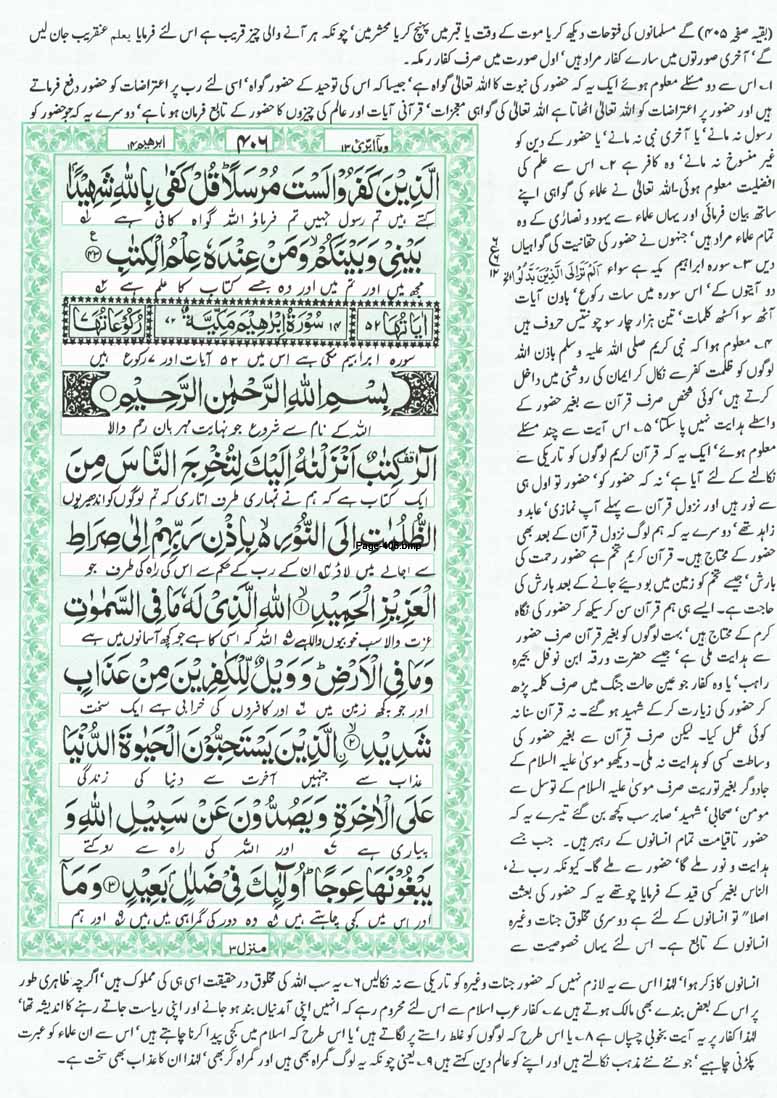 (بقیہ صفحہ ۴۰۵) گے مسلمانوں کی فتوحات دیکھ کر یا موت کے وقت یا قبر میں پہنچ کر یا محشر میں' چونکہ ہر آنے والی چیز قریب ہے اس لئے فرمایا یعلم عنقریب جان لیں
گے' آخری صورتوں میں سارے کفار مراد ہیں' اول صورت میں صرف کفار مکہ۔
۱۔ اس سے دو مسئلے معلوم ہوئے ایک یہ کہ حضور کی نبوت کا اللہ تعالیٰ گواہ ہے' جیسا کہ اس کی توحید کے حضور گواہ' اسی لئے رب پر اعتراضات کو حضور دفع فرماتے
ہیں اور حضور پر اعتراضات کو اللہ تعالیٰ اٹھاتا ہے اللہ تعالیٰ کی گواہی معجزات' قرآنی آیات اور عالم کی چیزوں کا حضور کے تابع فرمان ہونا ہے' دوسرے یہ کہ جو حضور کو
رسول نہ مانے' یا آخری نبی نہ مانے' یا حضور کے دین کو
غیر منسوخ نہ مانے' وہ کافر ہے ۲۔ اس سے علم کی
افضلیت معلوم ہوئی۔ اللہ تعالیٰ نے علماء کی گواہی اپنے
ساتھ بیان فرمائی اور یہاں علماء سے یہود و نصاریٰ کے وہ
تمام علماء مراد ہیں' جنہوں نے حضور کی حقانیت کی گواہیاں
دیں ۳۔ سورہ ابراہیم مکیہ ہے سواء اَلَمْ تَرَ اِلَى الَّذِيْنَ بَدَّلُوا الخ
دو آیتوں کے' اس سورہ میں سات رکوع' باون آیات
آٹھ سو اکسٹھ کلمات' تین ہزار چار سو چونتیس حروف ہیں
۴۔ معلوم ہوا کہ نبی کریم صلی اللہ علیہ وسلم باذن اللہ
لوگوں کو ظلمت کفر سے نکال کر ایمان کی روشنی میں داخل
کرتے ہیں' کوئی شخص صرف قرآن سے بغیر حضور کے
واسطے ہدایت نہیں پا سکتا' ۵۔ اس آیت سے چند مسئلے
معلوم ہوئے' ایک یہ کہ قرآن کریم لوگوں کو تاریکی سے
نکالنے کے لئے آیا ہے' نہ کہ حضور کو' حضور تو اول ہی
سے نور ہیں اور نزول قرآن سے پہلے آپ نمازی' عابد و
زاہد تھے' دوسرے یہ کہ ہم لوگ نزول قرآن کے بعد بھی
حضور کے محتاج ہیں۔ قرآن کریم تخم ہے حضور رحمت کی
بارش' جیسے تخم کو زمین میں بو دیئے جانے کے بعد بارش کی
حاجت ہے۔ ایسے ہی ہم قرآن سن کر سیکھ کر حضور کی نگاہ
کرم کے محتاج ہیں' بہت لوگوں کو بغیر قرآن صرف حضور
سے ہدایت ملی ہے' جیسے حضرت ورقہ ابن نوفل بحیرہ
راہب' یا وہ کفار جو عین حالت جنگ میں صرف کلمہ پڑھ
کر حضور کی زیارت کر کے شہید ہو گئے۔ نہ قرآن سنا نہ
کوئی عمل کیا۔ لیکن صرف قرآن سے بغیر حضور کی
وساطت کسی کو ہدایت نہ ملی۔ دیکھو موسیٰ علیہ السلام کے
جادوگر بغیر توریت صرف موسیٰ علیہ السلام کے توسل سے
مومن' صحابی' شہید' صابر سب کچھ بن گئے تیسرے یہ کہ
حضور تاقیامت تمام انسانوں کے رہبر ہیں۔ جب جسے
ہدایت و نور ملے گا' حضور سے ملے گا۔ کیونکہ رب نے'
الناس بغیر کسی قید کے فرمایا چوتھے یہ کہ حضور کی بعثت
اصلا" تو انسانوں کے لئے ہے دوسری مخلوق جنات وغیرہ
انسانوں کے تابع ہے۔ اس لئے یہاں خصوصیت سے
ع ۶ ۱۲
وما ابرئ ۱۳ ۴۰۶ ابرھیم ۱۴
الَّذِيْنَ كَفَرُوْا لَسْتَ مُرْسَلًا ؕ قُلْ كَفٰى بِاللّٰهِ شَهِيْدًا
کہتے ہیں تم رسول نہیں تم فرماؤ اللہ گواہ کافی ہے
بَيْنِيْ وَبَيْنَكُمْ ۙ وَمَنْ عِنْدَهٗ عِلْمُ الْكِتٰبِ ۴۳
مجھ میں اور تم میں اور وہ جسے کتاب کا علم ہے
اٰيَاتُهَا ۵۲ ۱۴ سُوْرَةُ اِبْرٰهِيْمَ مَكِّيَّةٌ ۷۲ رُكُوْعَاتُهَا ۷
سورہ ابراہیم مکی ہے اس میں ۵۲ آیات اور ۷ رکوع ہیں
بِسْمِ اللّٰهِ الرَّحْمٰنِ الرَّحِيْمِ
اللہ کے نام سے شروع جو نہایت مہربان رحم والا
الٓرٰ ۫ كِتٰبٌ اَنْزَلْنٰهُ اِلَيْكَ لِتُخْرِجَ النَّاسَ مِنَ
ایک کتاب ہے کہ ہم نے تمہاری طرف اتاری کہ تم لوگوں کو اندھیریوں
الظُّلُمٰتِ اِلَى النُّوْرِ ۙ بِاِذْنِ رَبِّهِمْ اِلٰى صِرَاطِ
Page-406.bmp
سے اجالے میں لاؤ ان کے رب کے حکم سے اس کی راہ کی طرف جو
الْعَزِيْزِ الْحَمِيْدِ ۱ اللّٰهِ الَّذِيْ لَهٗ مَا فِي السَّمٰوٰتِ
عزت والا سب خوبیوں والا ہے اللہ کہ اسی کا ہے جو کچھ آسمانوں میں ہے
وَمَا فِي الْاَرْضِ ؕ وَوَيْلٌ لِّلْكٰفِرِيْنَ مِنْ عَذَابٍ
اور جو کچھ زمین میں اور کافروں کی خرابی ہے ایک سخت
شَدِيْدِ ۲ الَّذِيْنَ يَسْتَحِبُّوْنَ الْحَيٰوةَ الدُّنْيَا
عذاب سے جنہیں آخرت سے دنیا کی زندگی
عَلَى الْاٰخِرَةِ وَيَصُدُّوْنَ عَنْ سَبِيْلِ اللّٰهِ وَ
پیاری ہے اور اللہ کی راہ سے روکتے
يَبْغُوْنَهَا عِوَجًا ؕ اُولٰٓئِكَ فِيْ ضَلٰلٍۭ بَعِيْدٍ ۳ وَمَآ
اور اس میں کجی چاہتے ہیں وہ دور کی گمراہی میں ہیں اور ہم
منزل ۳
انسانوں کا ذکر ہوا' لہٰذا اس سے یہ لازم نہیں کہ حضور جنات وغیرہ کو تاریکی سے نہ نکالیں ۶۔ یہ سب اللہ کی مخلوق در حقیقت اسی ہی کی مملوک ہیں' اگرچہ ظاہری طور
پر اس کے بعض بندے بھی مالک ہوتے ہیں ۷۔ کفار عرب اسلام سے اس لئے محروم رہے کہ انہیں اپنی آمدنیاں بند ہو جانے اور اپنی ریاست جاتے رہنے کا اندیشہ تھا'
لہٰذا کفار پر یہ آیت بخوبی چسپاں ہے ۸۔ یا اس طرح کہ لوگوں کو غلط راستے پر لگاتے ہیں' یا اس طرح کہ اسلام میں کجی پیدا کرنا چاہتے ہیں' اس سے ان علماء کو عبرت
پکڑنی چاہیے' جو نئے نئے مذہب نکالتے ہیں اور اپنے کو عالم دین کہتے ہیں ۹۔ یعنی چونکہ یہ لوگ گمراہ بھی ہیں اور گمراہ گر بھی' لہٰذا ان کا عذاب بھی سخت ہے۔